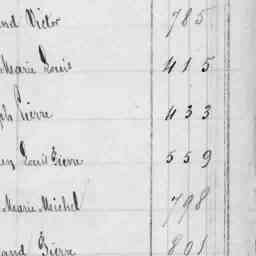 and Victor 785
Marie Louis 415
ph Pierre 433
en Louis Pierre 559
Marie Michel 798
and Pierre 801